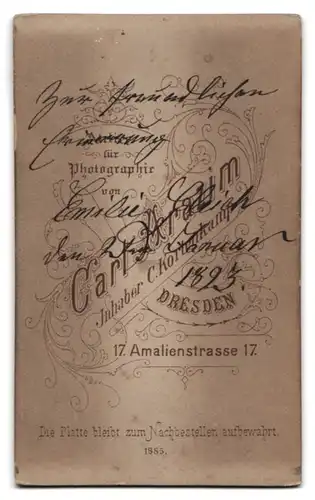 Zur freundlichen
Erinnerung
für
Photographie
von
Emilie
Carl
den Januar
Inhaber C.
1893.
DRESDEN
17. Amalienstrasse 17.
Die Platte bleibt zum Nachbestellen aufbewahrt.
1885.